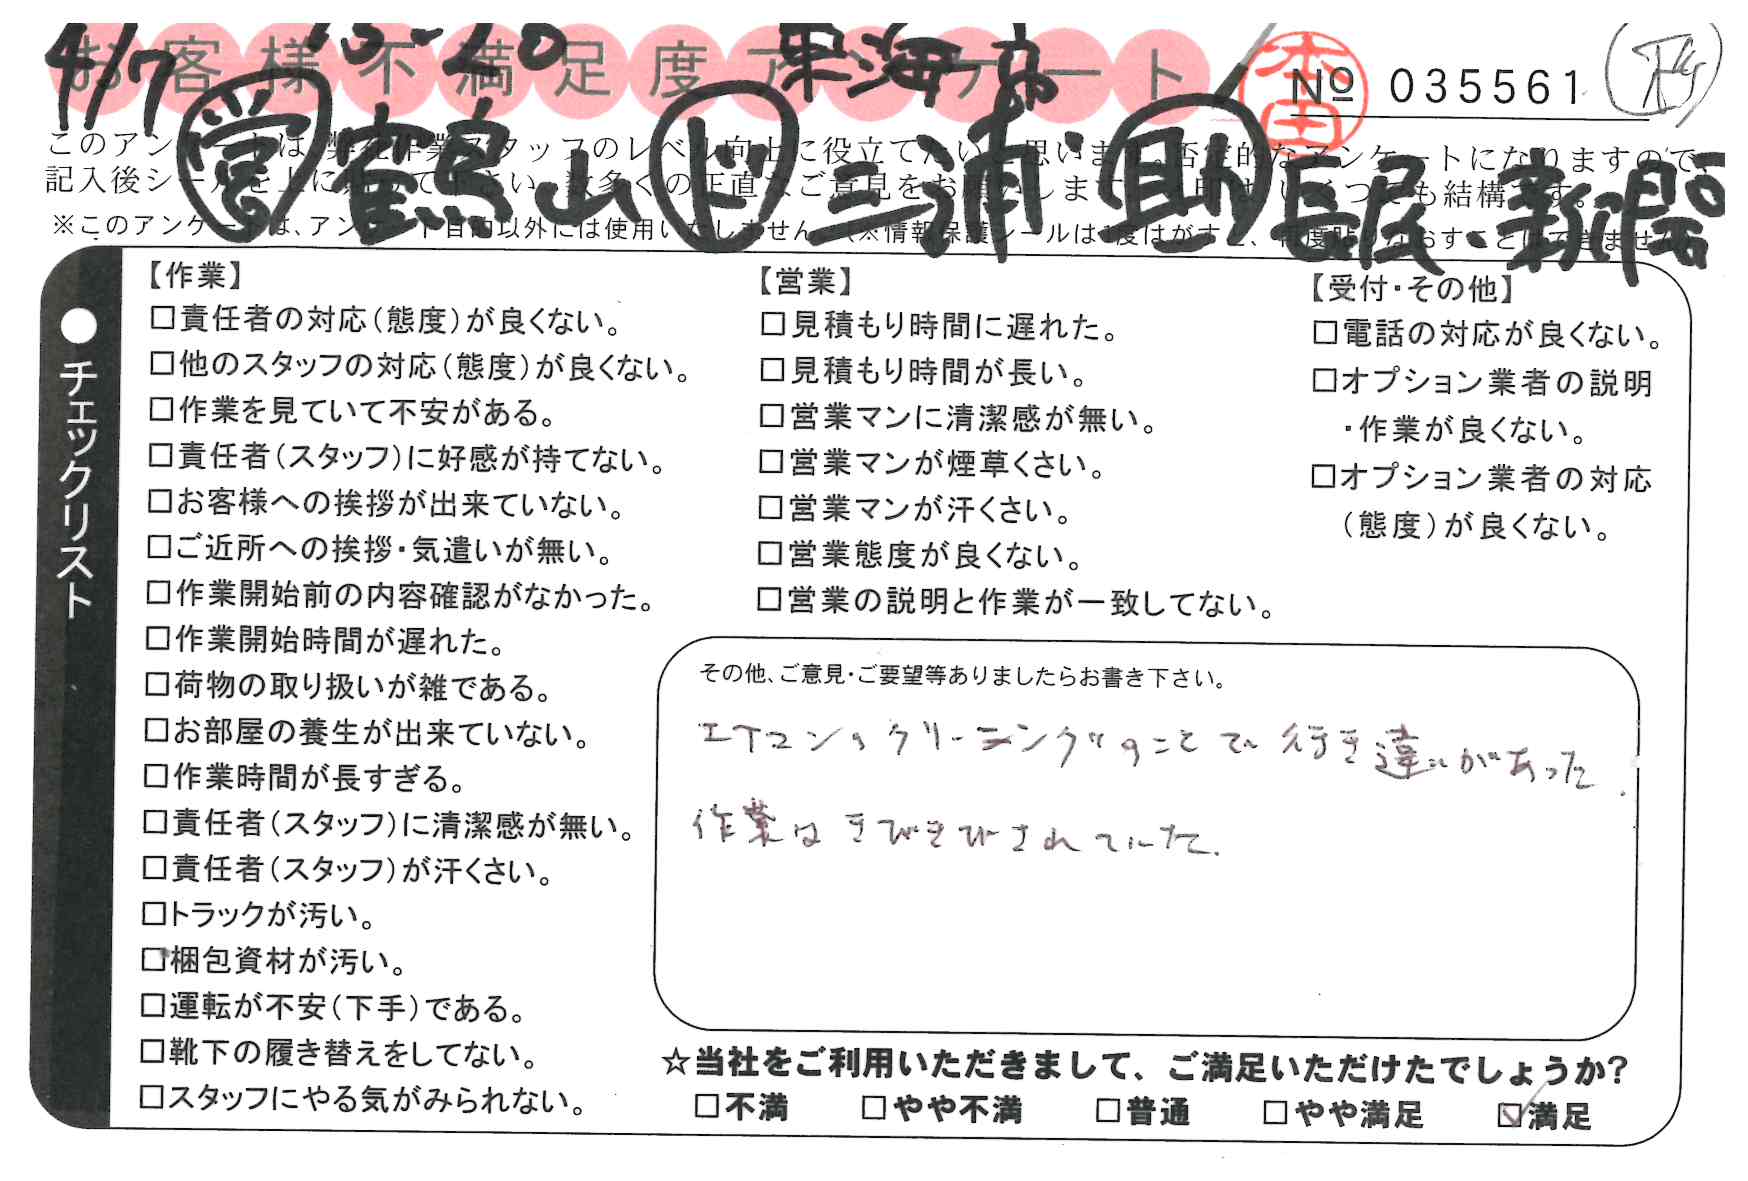 お客様不満足度アンケート
4/7 15-20 東海
本田
№ 035561
営 鶴山 ド 三浦 助 長尾・新開
このアンケートは、弊社作業スタッフのレベル向上に役立てたいと思います。否定的なアンケートになりますので、
記入後シールを上に貼って下さい。数多くの正直なご意見をお願いします。
※このアンケートは、アンケート目的以外には使用いたしません。(※情報保護シールは1度はがすと、再度貼りなおすことはできません)
●チェックリスト
【作業】
□責任者の対応(態度)が良くない。
□他のスタッフの対応(態度)が良くない。
□作業を見ていて不安がある。
□責任者(スタッフ)に好感が持てない。
□お客様への挨拶が出来ていない。
□ご近所への挨拶・気遣いが無い。
□作業開始前の内容確認がなかった。
□作業開始時間が遅れた。
□荷物の取り扱いが雑である。
□お部屋の養生が出来ていない。
□作業時間が長すぎる。
□責任者(スタッフ)に清潔感が無い。
□責任者(スタッフ)が汗くさい。
□トラックが汚い。
□梱包資材が汚い。
□運転が不安(下手)である。
□靴下の履き替えをしてない。
□スタッフにやる気がみられない。
【営業】
□見積もり時間に遅れた。
□見積もり時間が長い。
□営業マンに清潔感が無い。
□営業マンが煙草くさい。
□営業マンが汗くさい。
□営業態度が良くない。
□営業の説明と作業が一致してない。
【受付・その他】
□電話の対応が良くない。
□オプション業者の説明
・作業が良くない。
□オプション業者の対応
(態度)が良くない。
その他、ご意見・ご要望等ありましたらお書き下さい。
エアコンのクリーニングのことで行き違いがあった.
作業はきびきびされていた.
☆当社をご利用いただきまして、ご満足いただけたでしょうか?
□不満 □やや不満 □普通 □やや満足 ☑満足